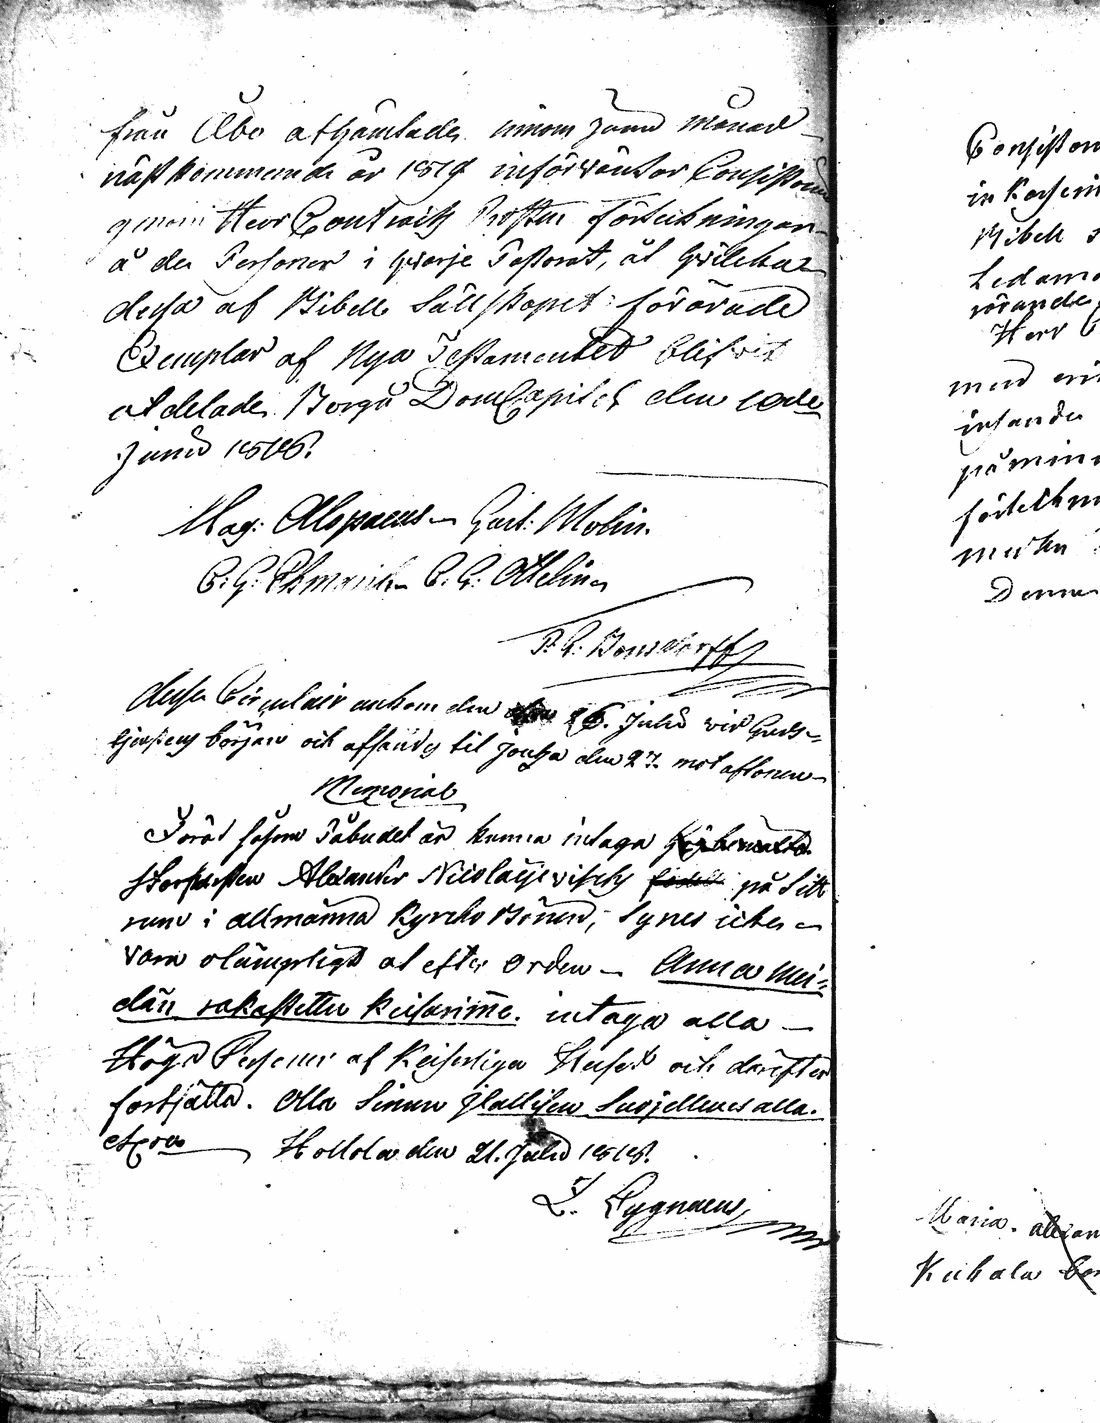 från Åbo afhämtade. innom Junii månad
näst kommande år 1819 införväntar Consistorium
genom Herr Contracts Prosten förtekningar
å de Personer i hvarje Pastorat, åt hvilka
dessa af Bibel Sällskapet förärade
Exemplar af Nya Testamentet blifvit
utdelade. Borgå DomCapitel den 10de
Junii 1818.
Mag: Alopaeus Gust: Molin.
C. G. Ottelin
P. G. Bonsdorff
dessa Circulair ankom den 26. Julii vid Guds-
tjenstens början och afsändes til Joutsa den 27. mot aftonen
Memorial
I det såsom Påbudet är kunna intaga
Storfursten Alexander Nicolaijevitsch på sitt
rum i allmänna Kyrko Bönen, synes icke
vara olämpligt at efter orden Anna mei-
dän rakastettu Keisarime. intaga alla
Höga Personer af Keiserliga Huset och därefter
fortsätta. Olla Sinun Hallisen Suojelluxes alla.
etc
Hollola den 21. Julii 1818.
Z. Cygnaeus
Consiston
in
Bibel s
Ledamo
rörande
Herr C
med
påmin
förtekn
Denne
Maria. Alexan